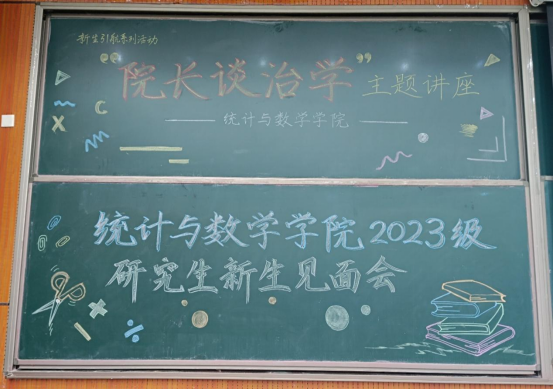 新生引航系列活动
“院长谈治学”主题讲座
统计与数学学院
统计与数学学院2023级
研究生新生见面会